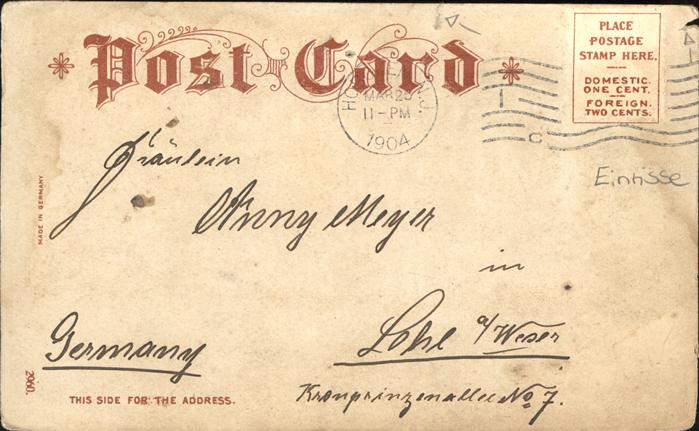 Post Card
PLACE
POSTAGE
STAMP HERE.
DOMESTIC.
ONE CENT.
FOREIGN.
TWO CENTS.
MAR 25
11-PM
1904
C
Einrisse
MADE IN GERMANY
Fräulein
Anny Meyer
in
Lohe a/Weser
Germany
Kronprinzenallee No 7.
2060.
THIS SIDE FOR THE ADDRESS.